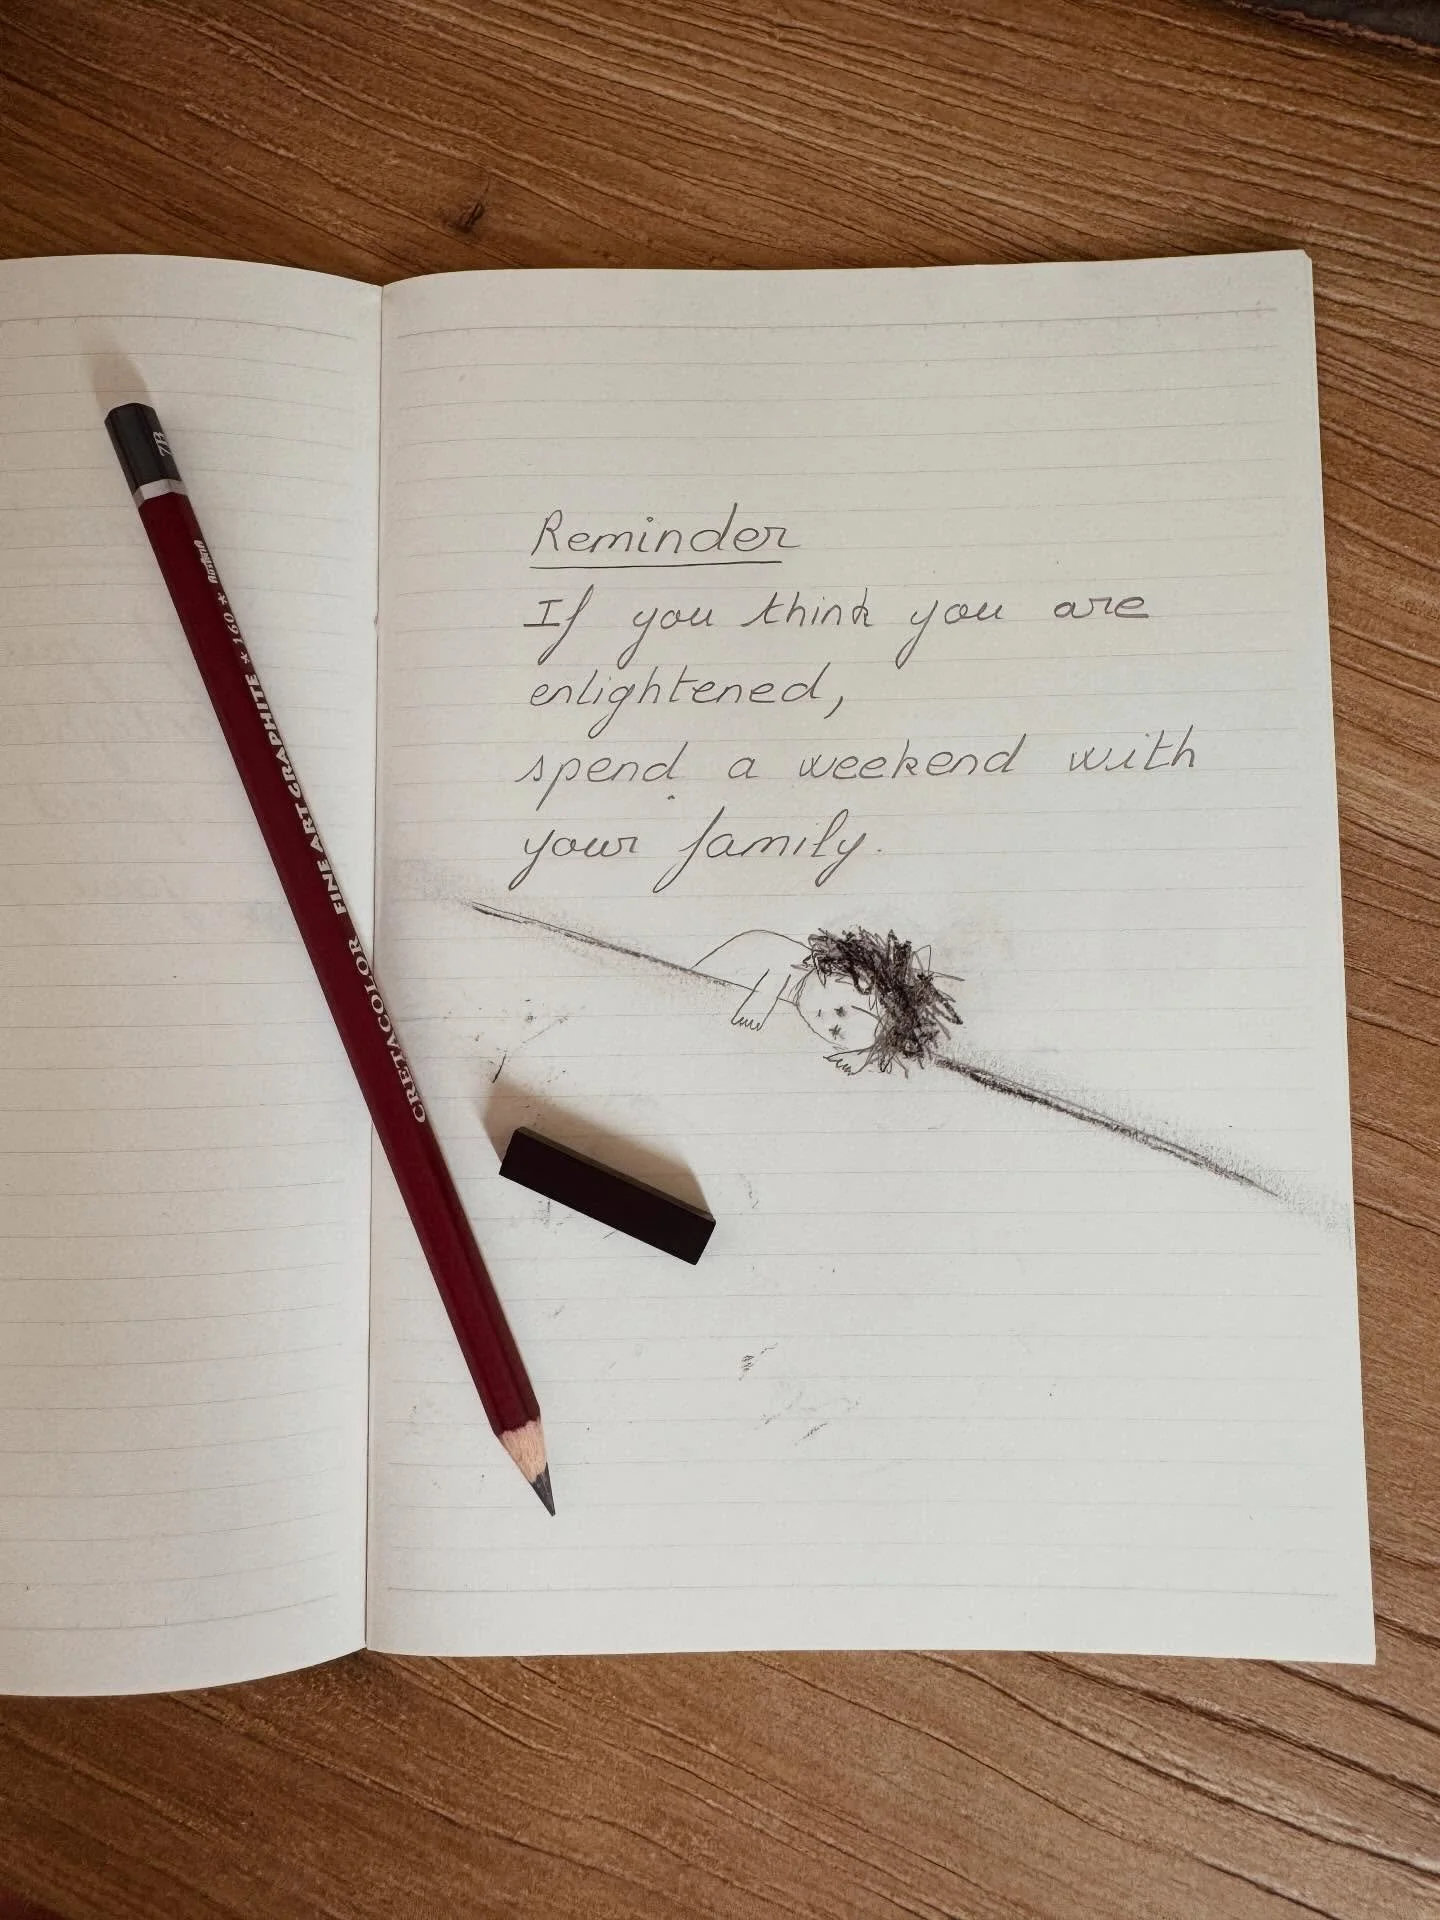 Reminder
If you think you are
enlightened,
spend a weekend with
your family.
CRETACOLOR FINE ART GRAPHITE * 160 * Austria
7B